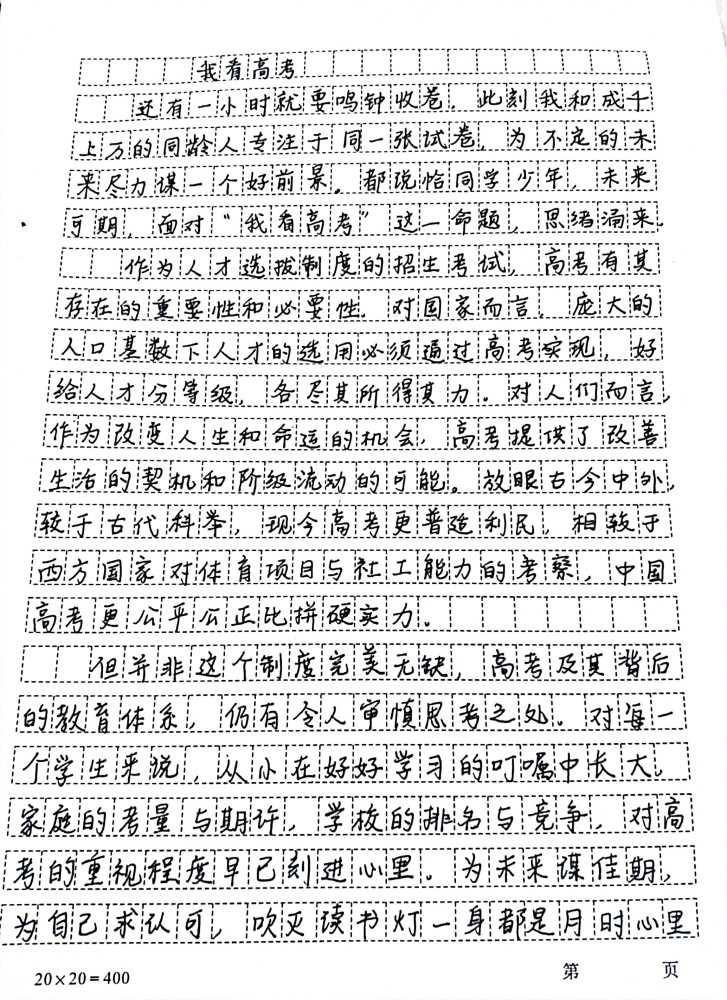 我看高考
还有一小时就要鸣钟收卷。此刻我和成千
上万的同龄人专注于同一张试卷，为不定的未
来尽力谋一个好前景。都说恰同学少年，未来
可期，面对“我看高考”这一命题，思绪涌来。
作为人才选拔制度的招生考试，高考有其
存在的重要性和必要性。对国家而言，庞大的
人口基数下人才的选用必须通过高考实现，好
给人才分等级，各尽其所得其力。对人们而言，
作为改变人生和命运的机会，高考提供了改善
生活的契机和阶级流动的可能。放眼古今中外，
较于古代科举，现今高考更普适利民，相较于
西方国家对体育项目与社工能力的考察，中国
高考更公平公正比拼硬实力。
但并非这个制度完美无缺，高考及其背后
的教育体系，仍有令人审慎思考之处。对每一
个学生来说，从小在好好学习的叮嘱中长大。
家庭的考量与期许，学校的排名与竞争，对高
考的重视程度早已刻进心里。为未来谋佳期，
为自己求认可，吹灭读书灯一身都是月时心里
20×20=400
第 页